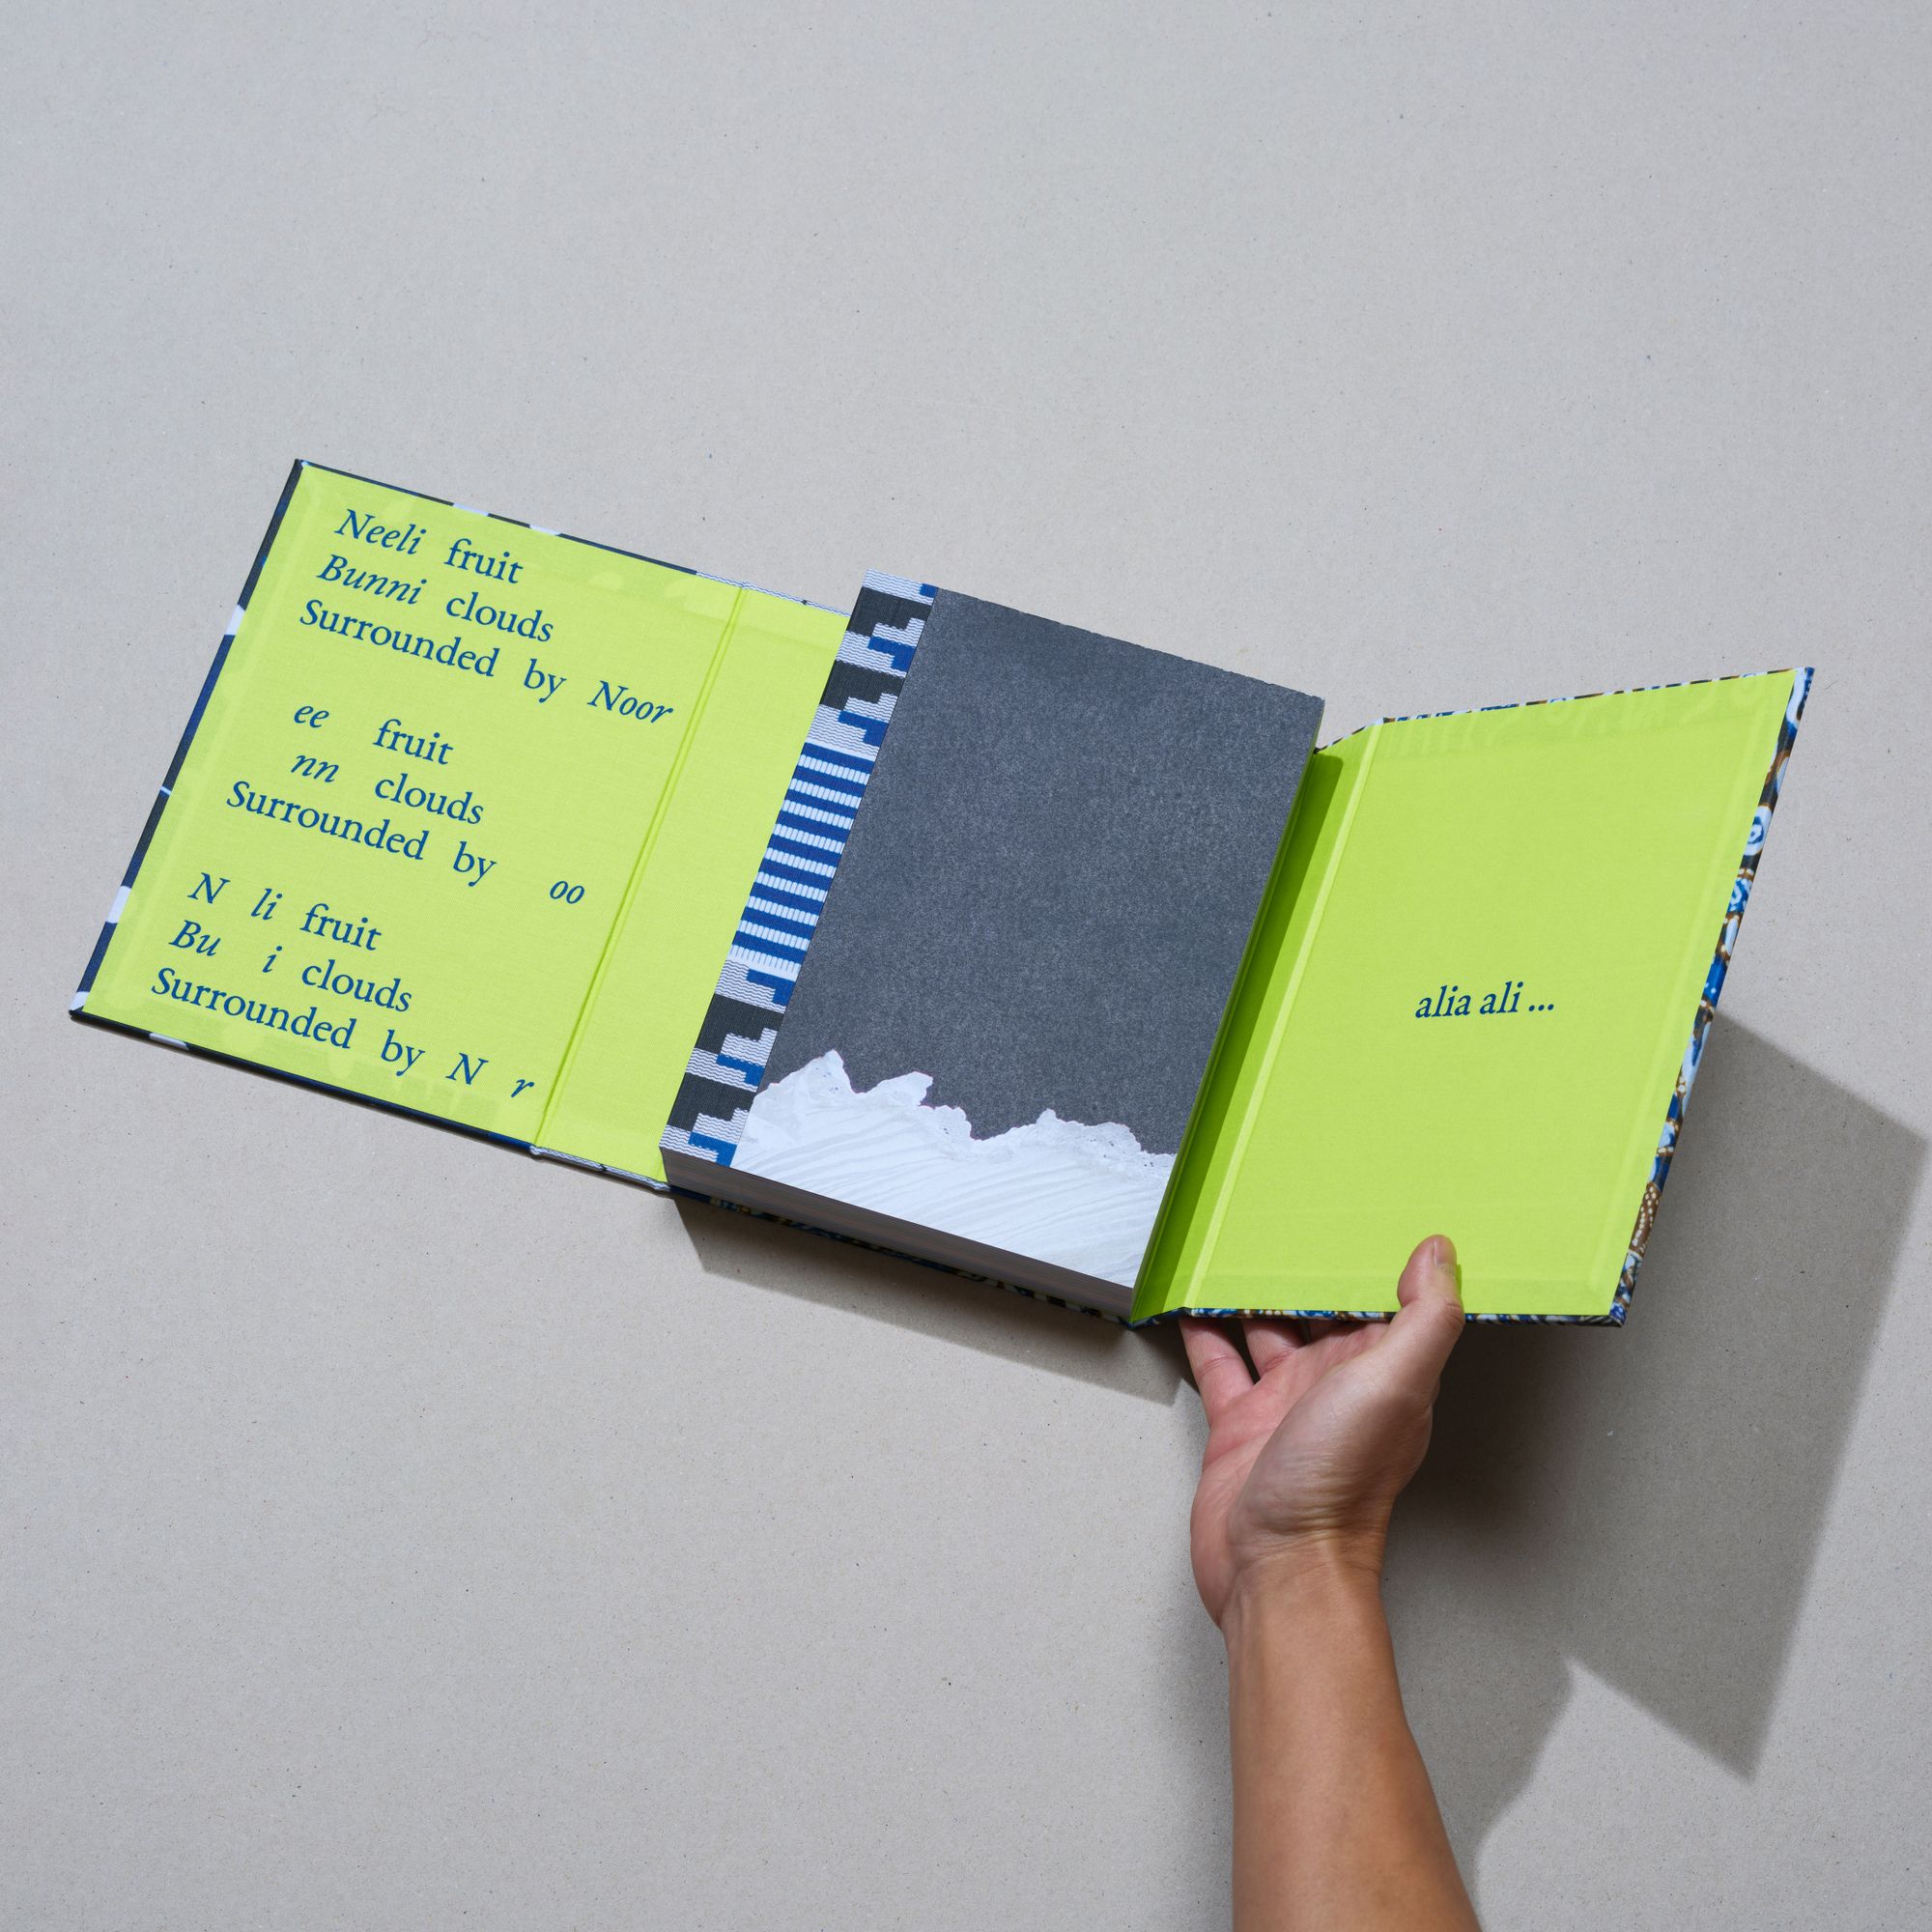 Neeli fruit
Bunni clouds
Surrounded by Noor
ee fruit
nn clouds
Surrounded by oo
N li fruit
Bu i clouds
Surrounded by N r
alia ali ...